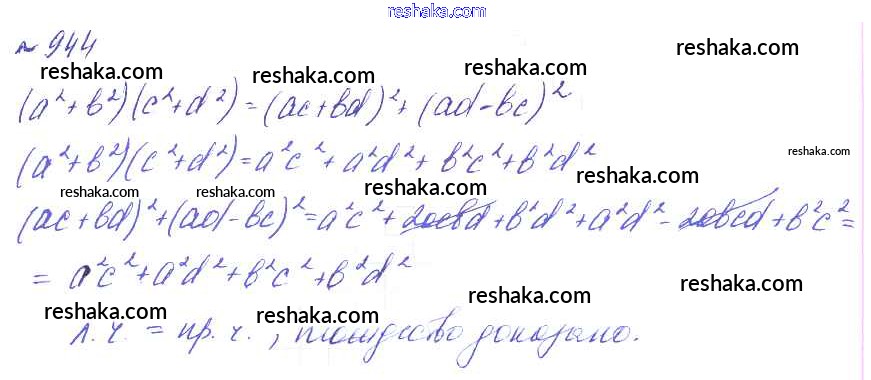 reshaka.com
№ 944
reshaka.com reshaka.com reshaka.com reshaka.com
(a²+b²)(c²+d²)=(ac+bd)²+(ad-bc)²
(a²+b²)(c²+d²)=a²c²+a²d²+b²c²+b²d²
reshaka.com
reshaka.com reshaka.com reshaka.com reshaka.com
(ac+bd)²+(ad-bc)²=a²c²+2acbd+b²d²+a²d²-2abcd+b²c²=
= a²c²+a²d²+b²c²+b²d²
reshaka.com reshaka.com reshaka.com reshaka.com
л.ч. = пр.ч., тождество доказано.